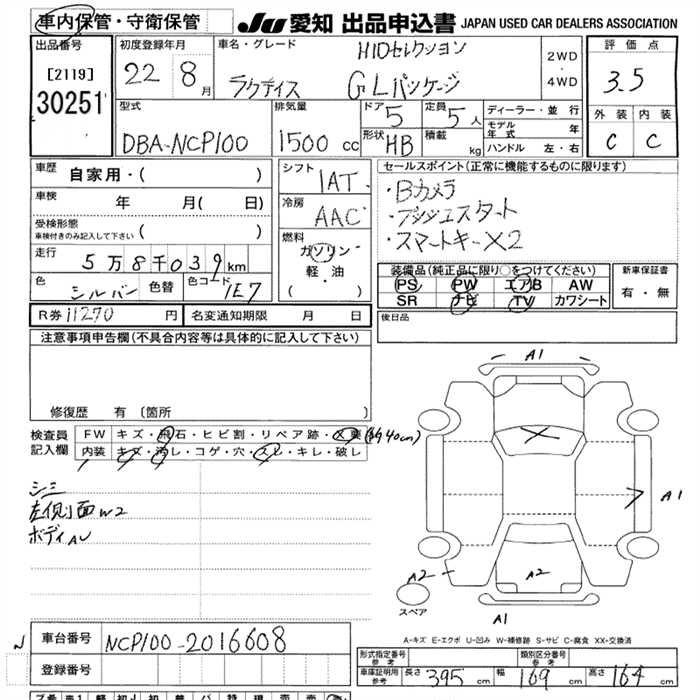 車内保管・守衛保管
JU 愛知 出品申込書 JAPAN USED CAR DEALERS ASSOCIATION
出品番号
[2119]
30251
初度登録年月
22 8月
車名・グレード
HIDセレクション
ラクティス G Lパッケージ
2WD
・
4WD
評価点
3.5
外装 内装
C C
型式
DBA-NCP100
排気量
1500 cc
ドア 5
定員 5人
形状 HB
積載 kg
ディーラー・並行
モデル年式 年
ハンドル 左・右
車歴
自家用・( )
車検
年 月( 日)
受検形態
車検付きのみ記入して下さい ( )
走行
5万8千039km
色 シルバー 色替 色コード 1E7
シフト
1AT
冷房
AAC
燃料
ガソリン
軽・油
( ・ )
セールスポイント(正常に機能するものに限ります)
・Bカメラ
・プッシュスタート
・スマートキー×2
装備品(純正品に限り○をつけてください)
PS PW エアB AW
SR ナビ TV カワシート
新車保証書
有・無
R券 11270 円
名変通知期限 月 日
後日品
注意事項申告欄(不具合内容等は具体的に記入して下さい)
修復歴 有 〔箇所 〕
検査員
記入欄
FW キズ・飛石・ヒビ割・リペア跡・X要(約40cm)
内装 キズ・汚レ・コゲ・穴・スレ・キレ・破レ
シミ
左側面W2
ボディAU
A1
A1
A2
A2
A1
スペア
A-キズ E-エクボ U-凹み W-補修跡 S-サビ C-腐食 XX-交換済
車台番号 NCP100-2016608
登録番号
形式指定番号 参考
類別区分番号 参考
車庫証明用 参考
長さ 395 cm 幅 169 cm 高さ 164 cm